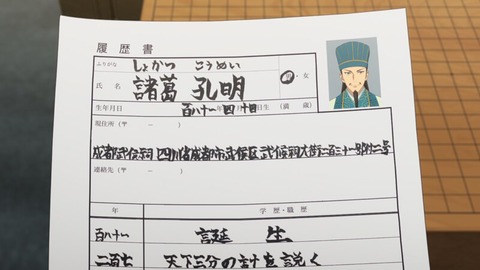 履歴書
ふりがな しょかつ こうめい
氏名 諸葛 孔明 男・女
生年月日 百八十一 四 十日生(満 歳)
現住所(〒 － )
成都武侯祠 四川省成都市武侯区武侯祠大街二百三十一号附二号
連絡先(〒 － )
年 学歴・職歴
百八十一 誕生
二百七 天下三分の計を説く